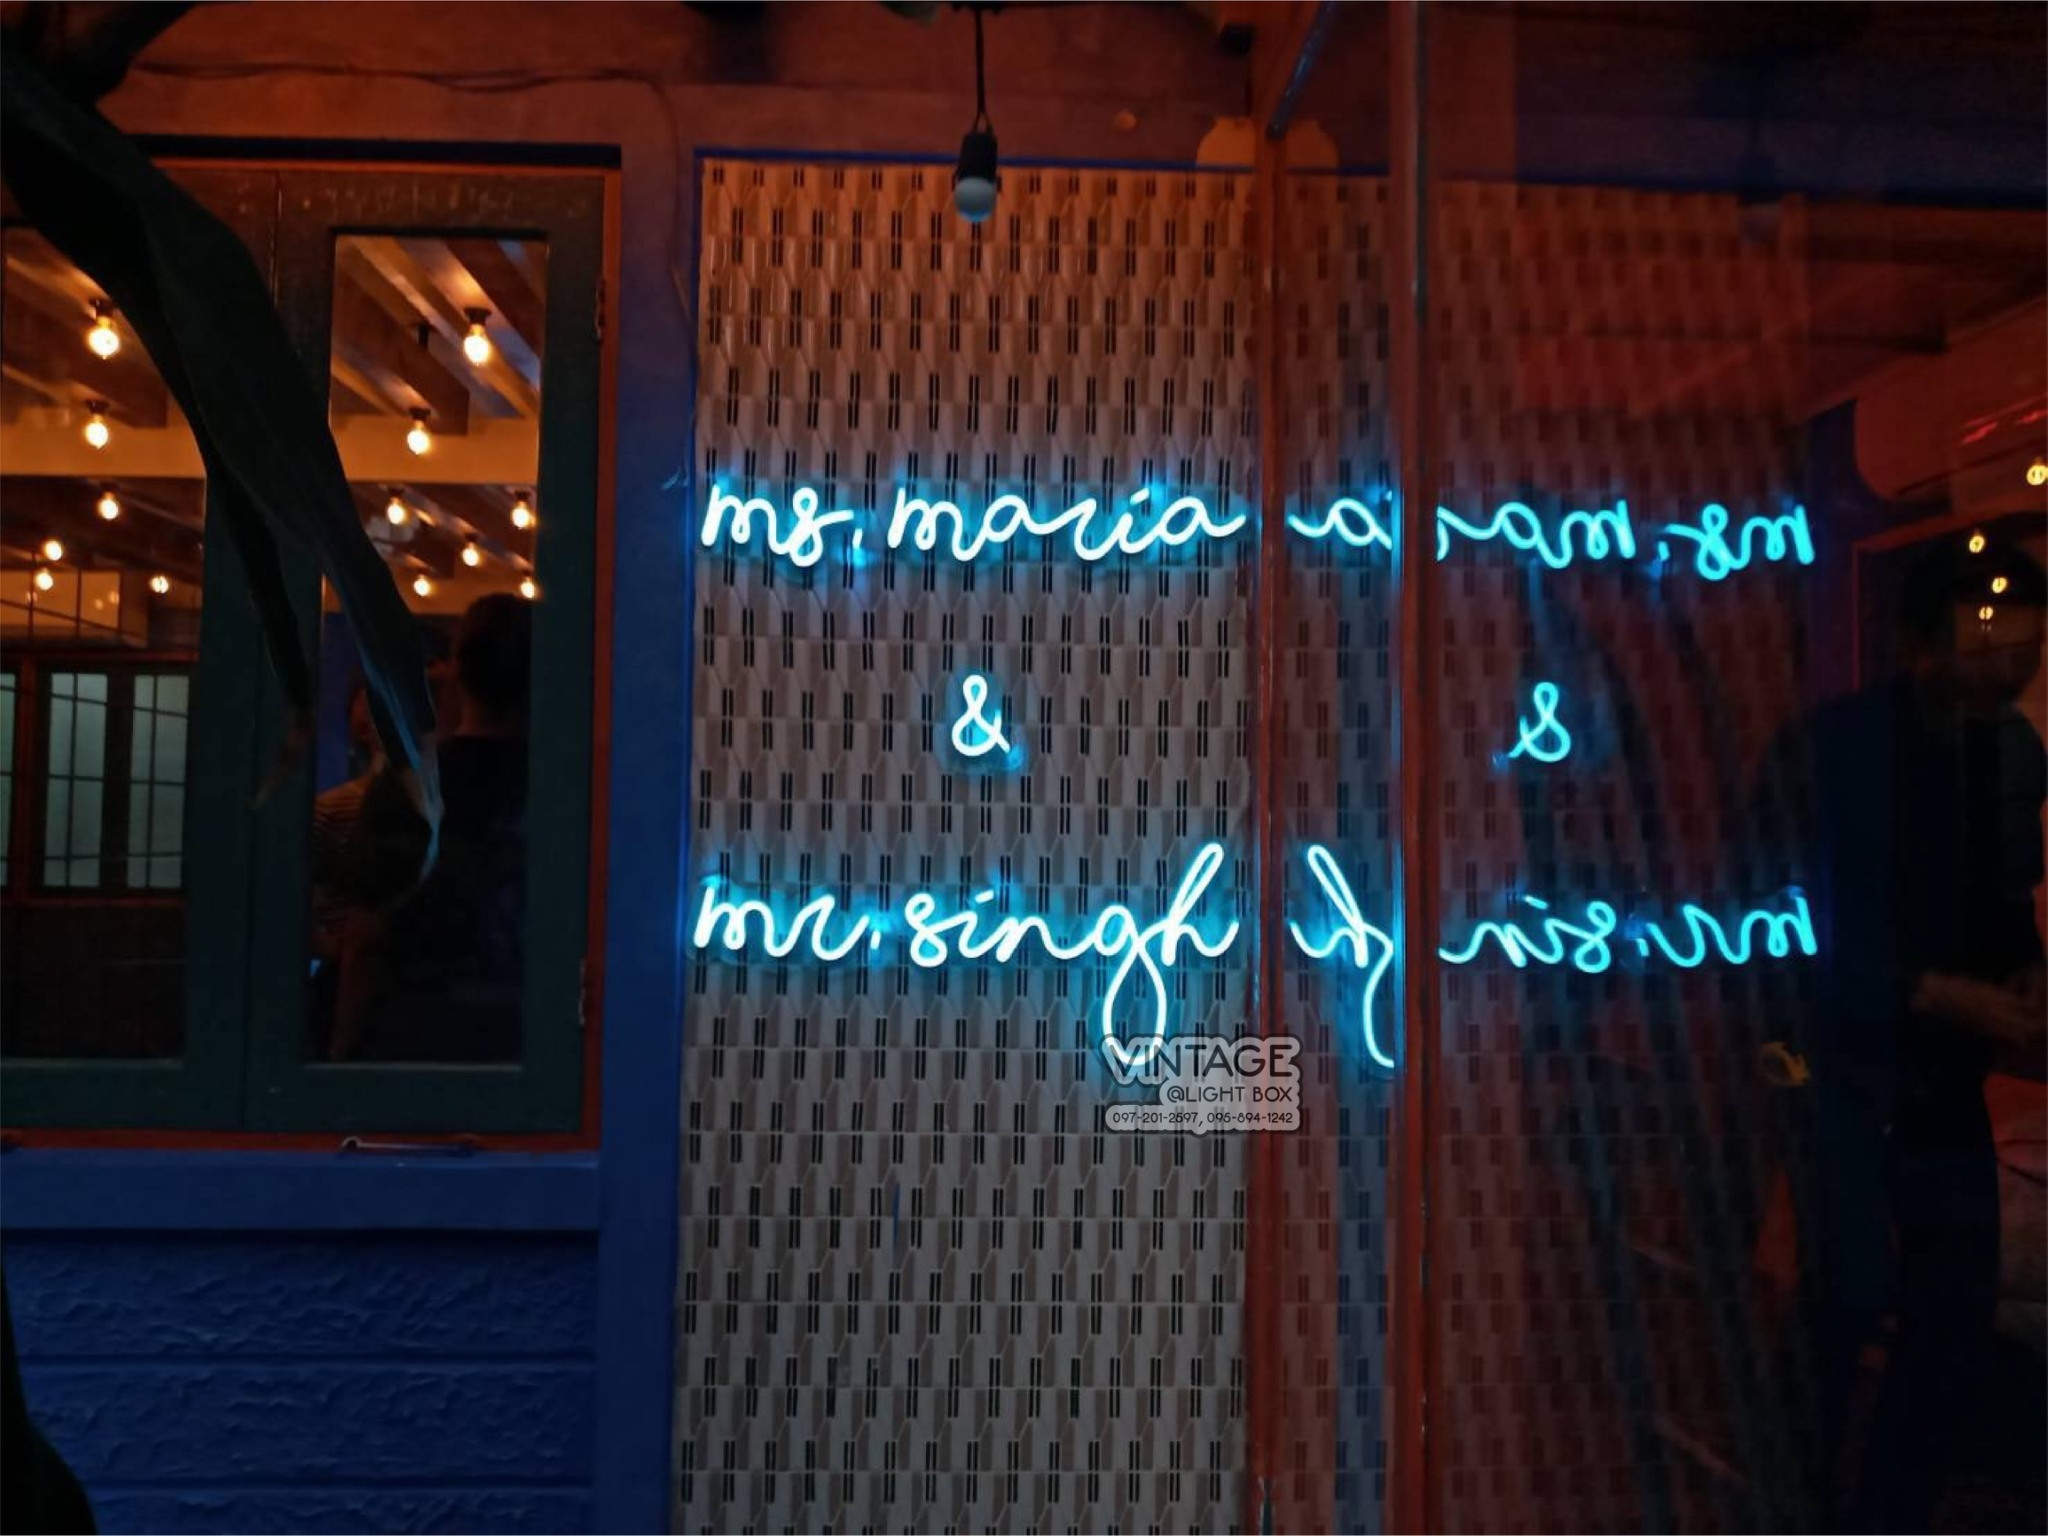 ms. maria
&
mr. singh
VINTAGE
@LIGHT BOX
097-201-2597, 095-894-1242